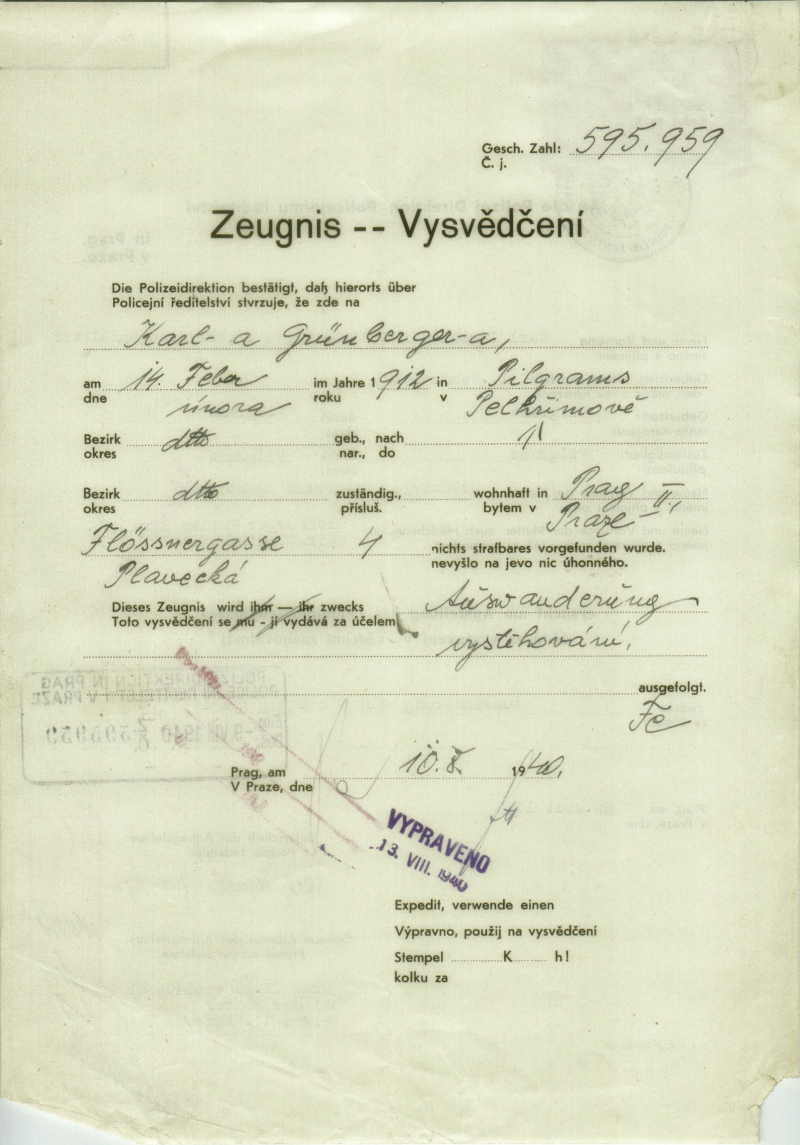 Gesch. Zahl: 595.959
Č. j.
Zeugnis -- Vysvědčení
Die Polizeidirektion bestätigt, daß hierorts über
Policejní ředitelství stvrzuje, že zde na
Karl- a Grünberger-a,
am 14. Feber im Jahre 1912 in Pilgrams
dne února roku v Pelhřimově
Bezirk dtto geb., nach
okres nar., do
Bezirk dtto zuständig., wohnhaft in Prag II,
okres přísluš. bytem v Praze
Flössnergasse 4 nichts strafbares vorgefunden wurde.
Plavecká nevyšlo na jevo nic úhonného.
Dieses Zeugnis wird ihm — ihr zwecks Auswanderung
Toto vysvědčení se mu - jí vydává za účelem vystěhování,
ausgefolgt.
Fc
Prag, am 10.8. 1940.
V Praze, dne
VYPRAVENO
13. VIII. 1940
Expedit, verwende einen
Výpravno, použij na vysvědčení
Stempel K h!
kolku za